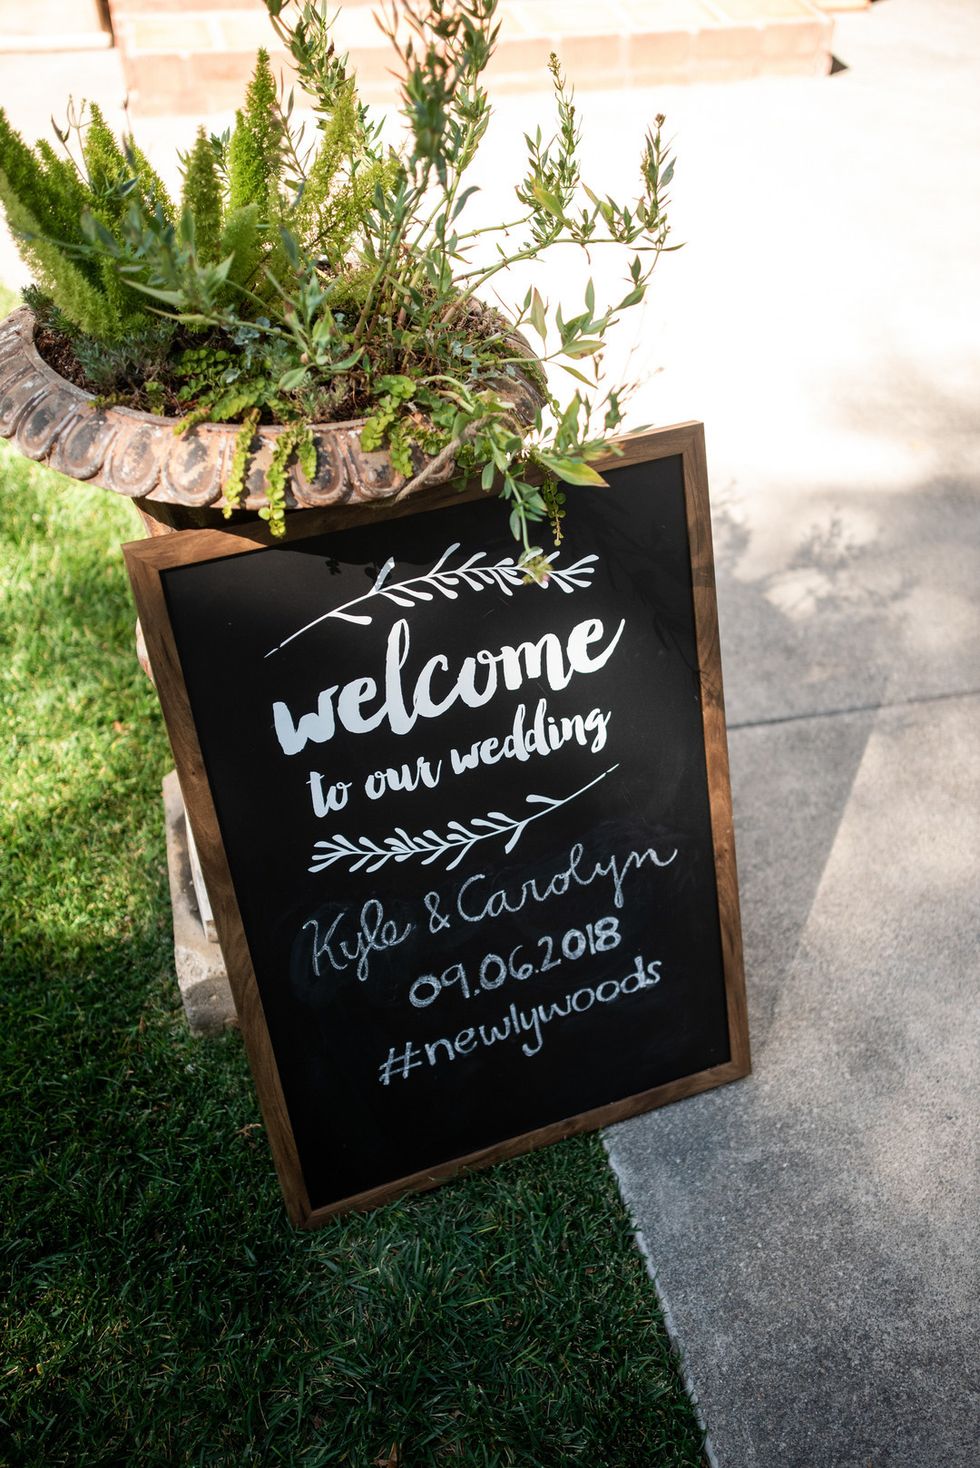 welcome
to our wedding
Kyle & Carolyn
09.06.2018
#newlywoods